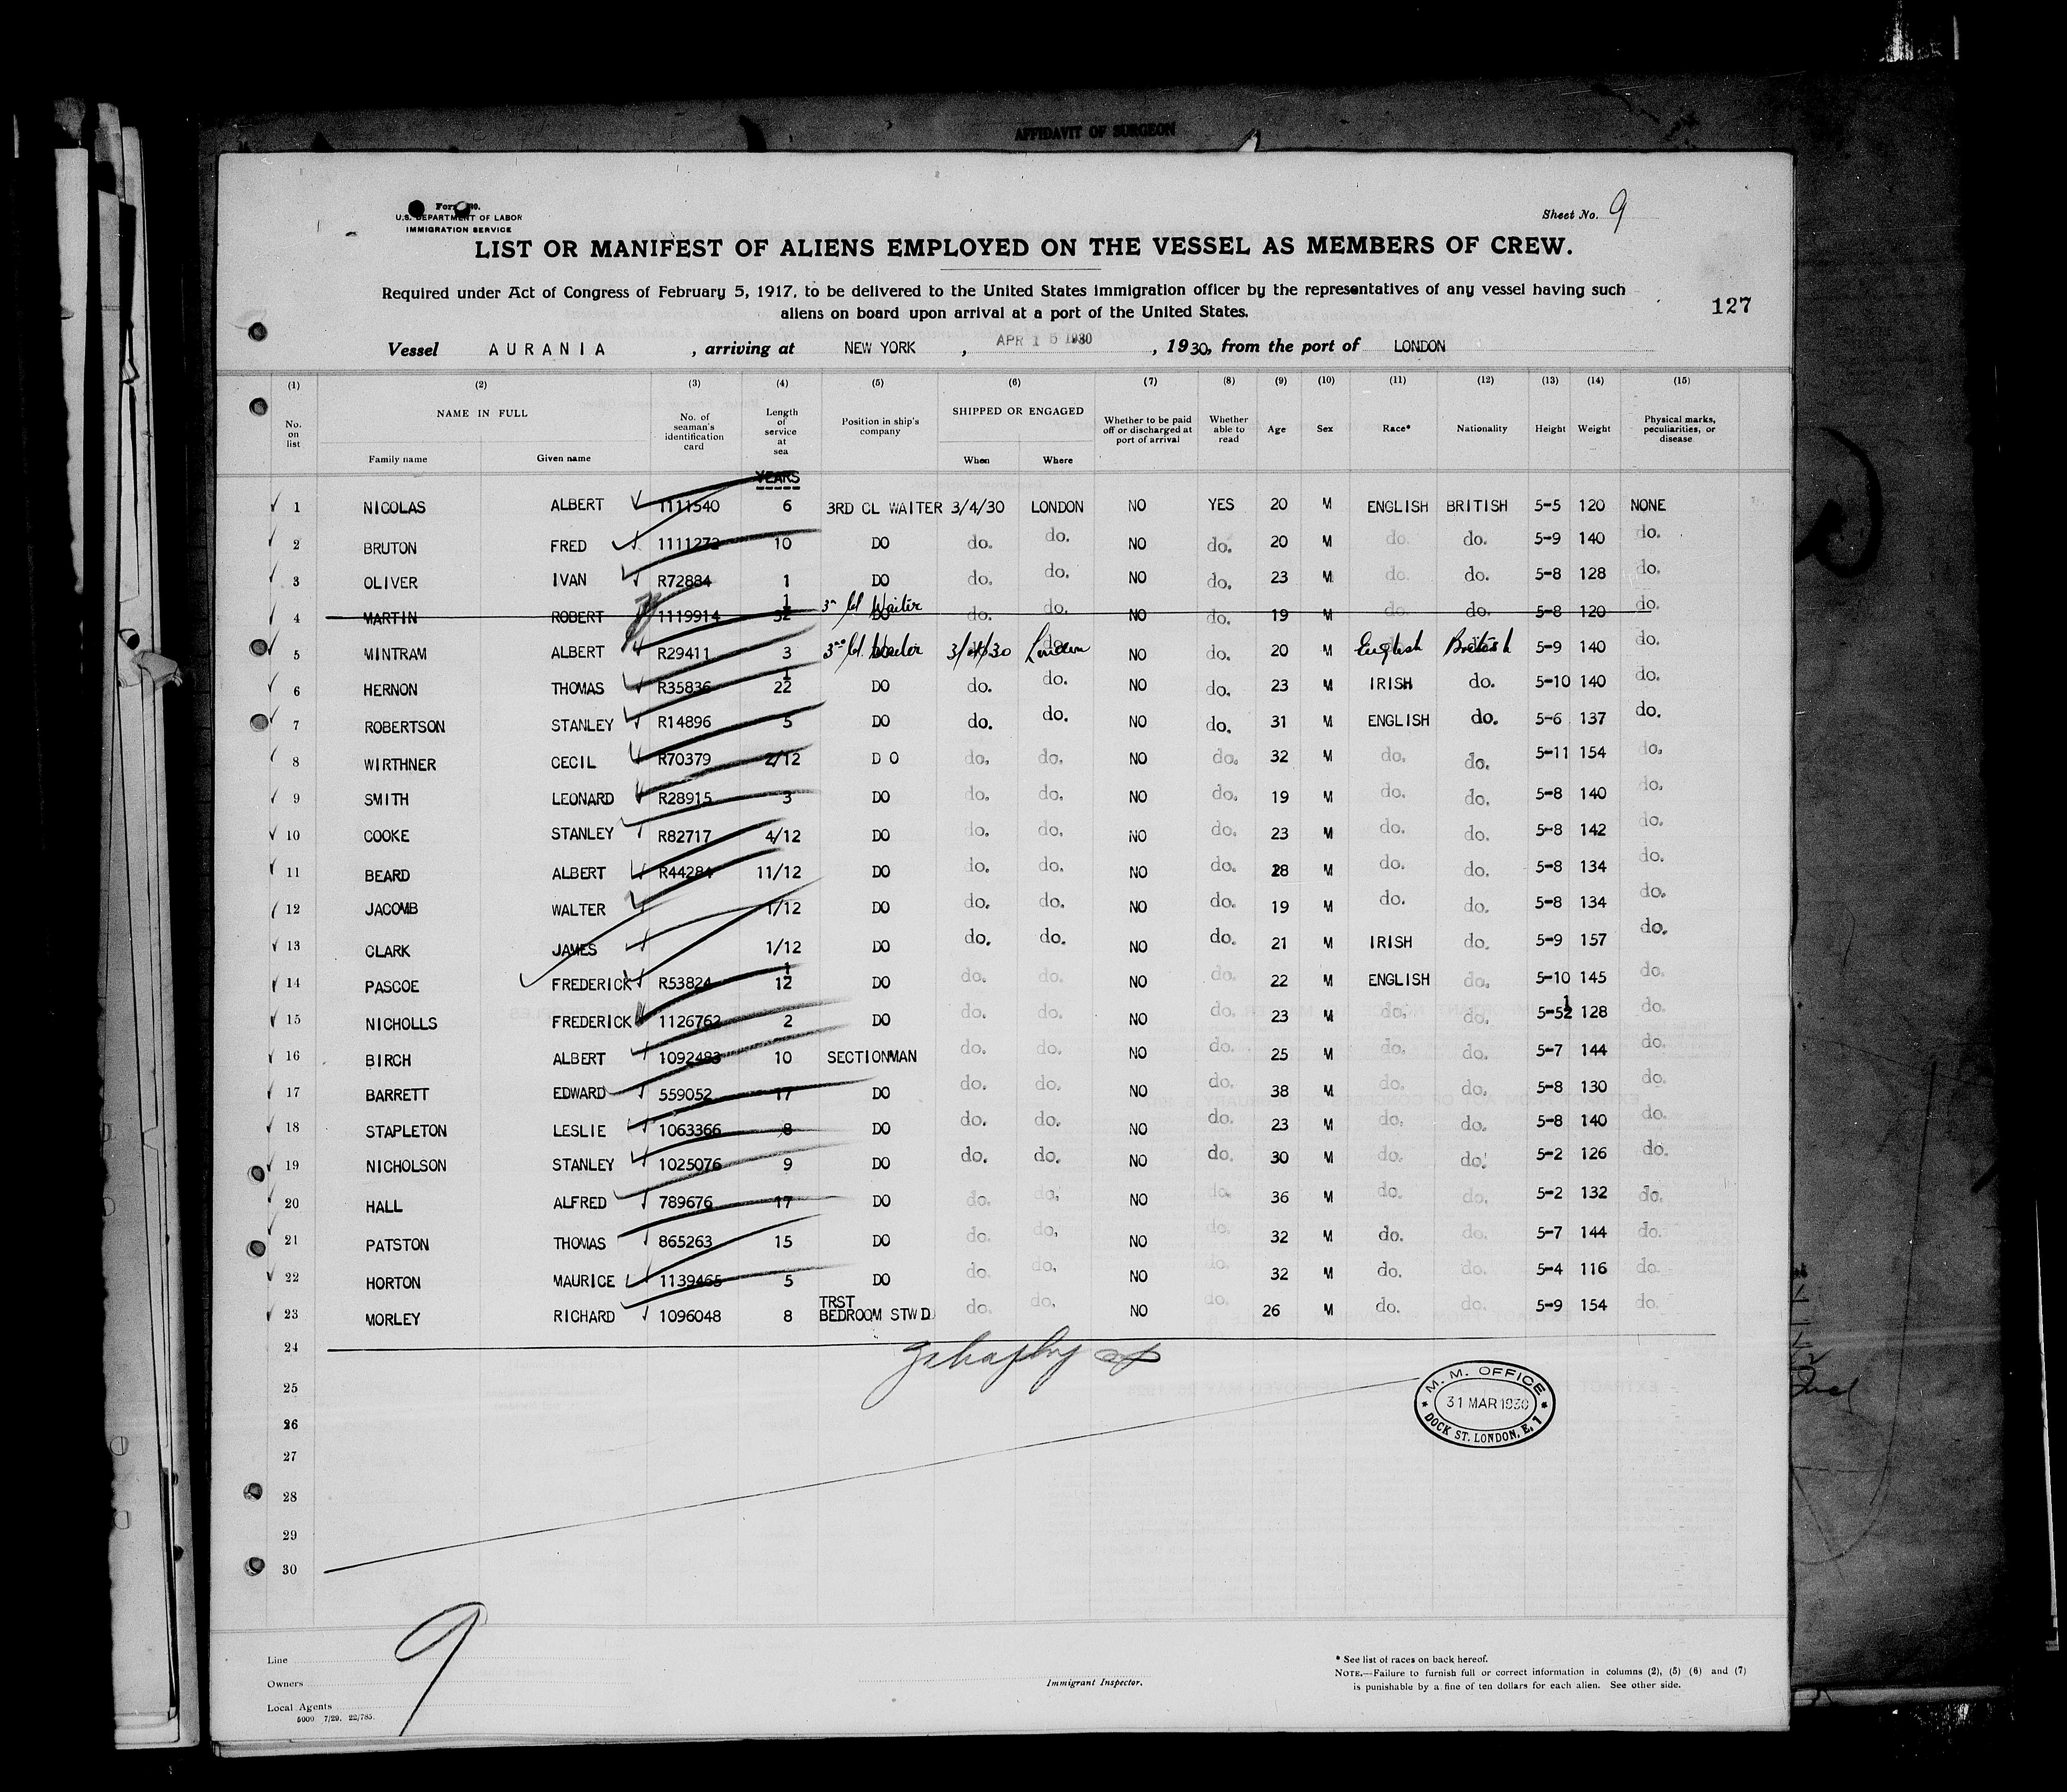 AFFIDAVIT OF SURGEON
Form No.
U.S. DEPARTMENT OF LABOR
IMMIGRATION SERVICE
Sheet No. 9
LIST OR MANIFEST OF ALIENS EMPLOYED ON THE VESSEL AS MEMBERS OF CREW.
Required under Act of Congress of February 5, 1917, to be delivered to the United States immigration officer by the representatives of any vessel having such
aliens on board upon arrival at a port of the United States.
127
Vessel AURANIA, arriving at NEW YORK, APR 15 1930, 1930, from the port of LONDON
(1) (2) (3) (4) (5) (6) (7) (8) (9) (10) (11) (12) (13) (14) (15)
No. on list NAME IN FULL Family name Given name No. of seaman's identification card Length of service at sea Position in ship's company SHIPPED OR ENGAGED When Where Whether to be paid off or discharged at port of arrival Whether able to read Age Sex Race* Nationality Height Weight Physical marks, peculiarities, or disease
YEARS
1 NICOLAS ALBERT 1111540 6 3RD CL WAITER 3/4/30 LONDON NO YES 20 M ENGLISH BRITISH 5-5 120 NONE
2 BRUTON FRED 1111273 10 DO do. do. NO do. 20 M do. do. 5-9 140 do.
3 OLIVER IVAN R72884 1 DO do. do. NO do. 23 M do. do. 5-8 128 do.
4 MARTIN ROBERT 1119914 3½ DO 3rd Cl Waiter do. do. NO do. 19 M do. do. 5-8 120 do.
5 MINTRAM ALBERT R29411 3 3rd Cl. Waiter 3/4/30 London NO do. 20 M English British 5-9 140 do.
6 HERNON THOMAS R35836 2½ DO do. do. NO do. 23 M IRISH do. 5-10 140 do.
7 ROBERTSON STANLEY R14896 5 DO do. do. NO do. 31 M ENGLISH do. 5-6 137 do.
8 WIRTHNER CECIL R70379 2/12 DO do. do. NO do. 32 M do. do. 5-11 154 do.
9 SMITH LEONARD R28915 3 DO do. do. NO do. 19 M do. do. 5-8 140 do.
10 COOKE STANLEY R82717 4/12 DO do. do. NO do. 23 M do. do. 5-8 142 do.
11 BEARD ALBERT R44284 11/12 DO do. do. NO do. 28 M do. do. 5-8 134 do.
12 JACOMB WALTER 1/12 DO do. do. NO do. 19 M do. do. 5-8 134 do.
13 CLARK JAMES 1/12 DO do. do. NO do. 21 M IRISH do. 5-9 157 do.
14 PASCOE FREDERICK R53824 1½ DO do. do. NO do. 22 M ENGLISH do. 5-10 145 do.
15 NICHOLLS FREDERICK 1126762 2 DO do. do. NO do. 23 M do. do. 5-5½ 128 do.
16 BIRCH ALBERT 1092483 10 SECTIONMAN do. do. NO do. 25 M do. do. 5-7 144 do.
17 BARRETT EDWARD 559052 17 DO do. do. NO do. 38 M do. do. 5-8 130 do.
18 STAPLETON LESLIE 1063366 8 DO do. do. NO do. 23 M do. do. 5-8 140 do.
19 NICHOLSON STANLEY 1025076 9 DO do. do. NO do. 30 M do. do. 5-2 126 do.
20 HALL ALFRED 789676 17 DO do. do. NO do. 36 M do. do. 5-2 132 do.
21 PATSTON THOMAS 865263 15 DO do. do. NO do. 32 M do. do. 5-7 144 do.
22 HORTON MAURICE 1139465 5 DO do. do. NO do. 32 M do. do. 5-4 116 do.
23 MORLEY RICHARD 1096048 8 TRST BEDROOM STWD do. do. NO do. 26 M do. do. 5-9 154 do.
24
25
26
27
28
29
30
M. M. OFFICE
31 MAR 1930
DOCK ST. LONDON, E.1
9
Line
Owners
Local Agents
5000 7/29. 22/785.
Immigrant Inspector.
* See list of races on back hereof.
NOTE.—Failure to furnish full or correct information in columns (2), (5) (6) and (7)
is punishable by a fine of ten dollars for each alien. See other side.